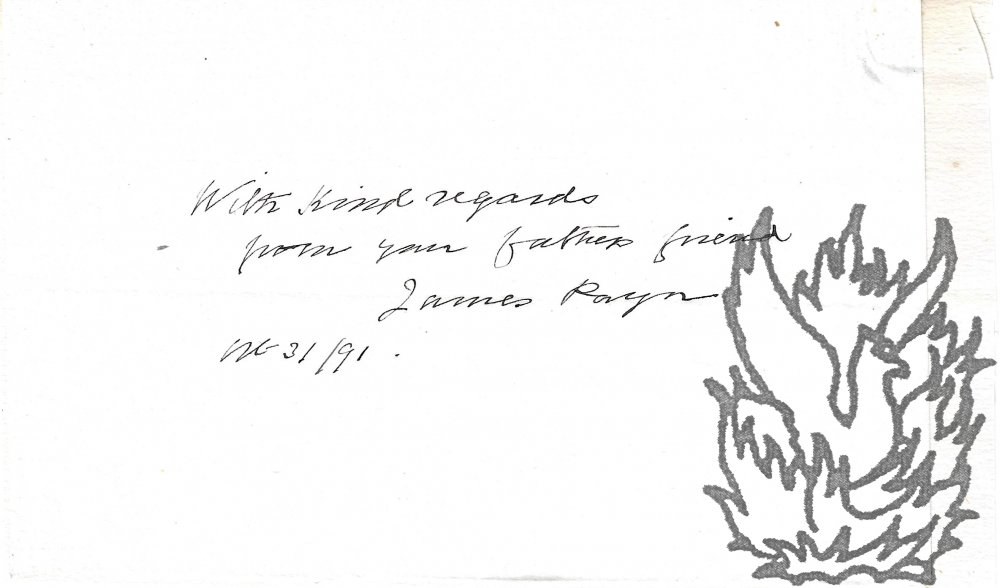 With kind regards
from your fathers friend
James Payn
Oct 31/91.